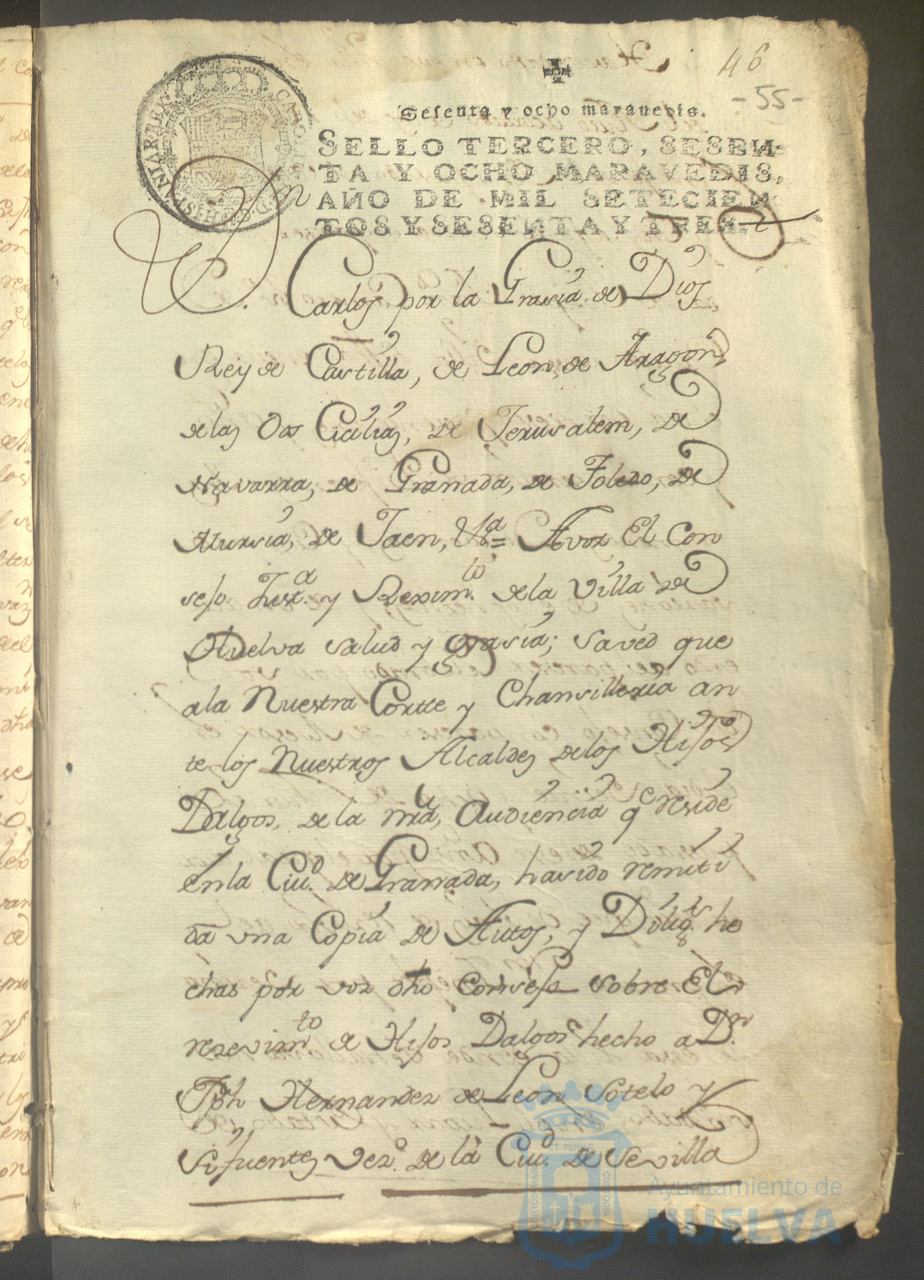 46
-55-
Sesenta y ocho maravedis.
SELLO TERCERO, SESEN-
TA Y OCHO MARAVEDIS,
AÑO DE MIL SETECIEN-
TOS Y SESENTA Y TRES.
CAROLUS HISPANIAR REX
Dn. Carlos por la Grasia de Dios
Rey de Castilla, de Leon, de Aragon
de las Dos Cicilias, de Jerusalem, de
Navarra, de Granada, de Toledo, de
Mursia, de Jaen, &a= A vos El Con
sejo Justa. y Reximto. de la Villa de
Huelva salud y grasia; saved que
a la Nuestra Corte y Chansilleria an
te los Nuestros Alcaldes de los Hijos
Dalgos, de la nra, Audiencia qe reside
en la Ciud. de Granada, havido remiti
da una Copia de Autos, y Diligs. he
chas por vos dho Consejo sobre El
resevimto a Hijos Dalgos hecho a Dn.
Jph Hernandez de Leon Sotelo y
Sifuentes vezo. de la Ciud. de Sevilla
Ayuntamiento de
HUELVA